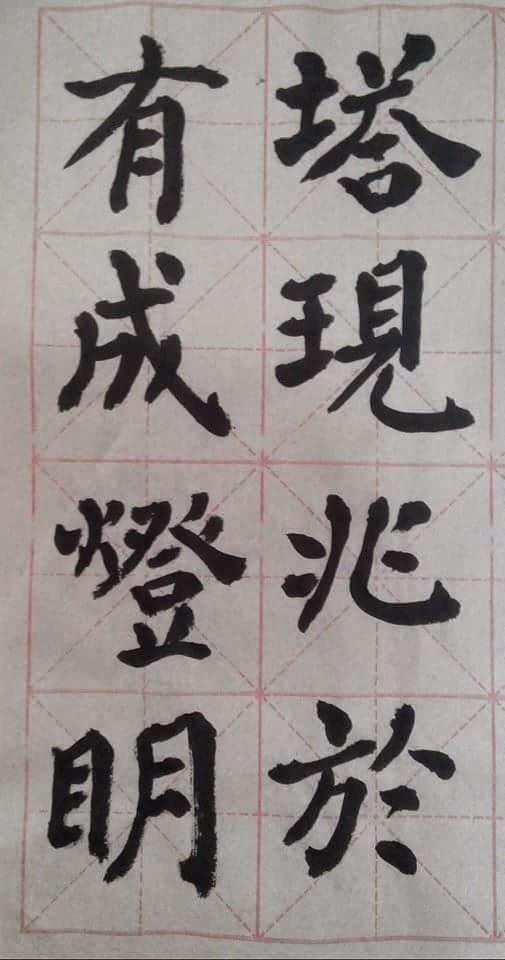 塔現兆於
有成燈明